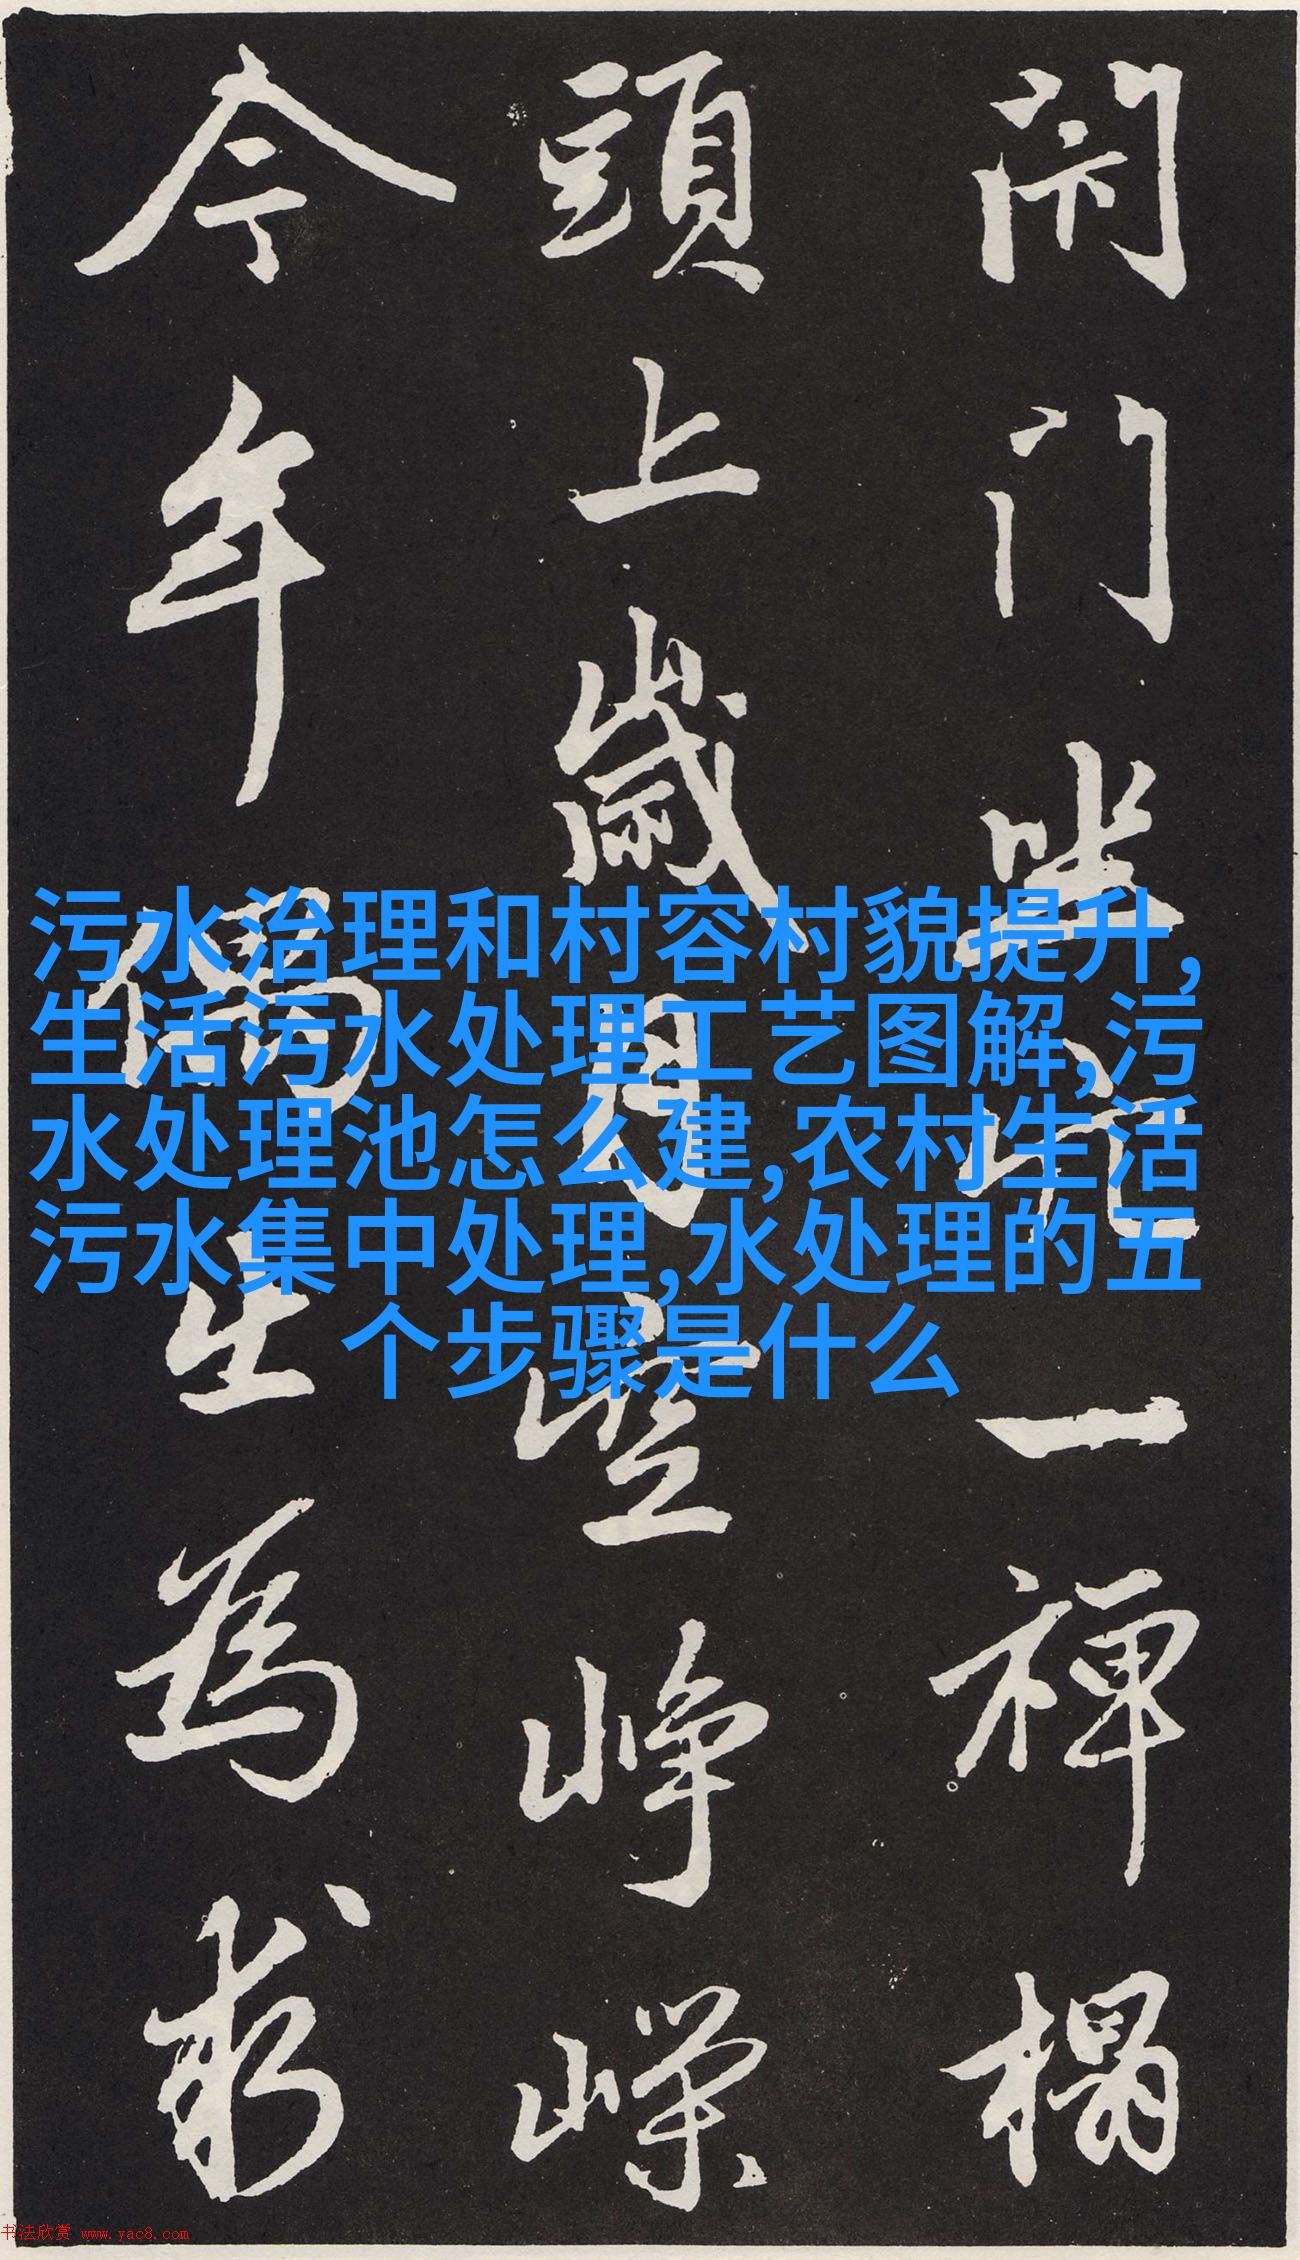 闭门坐穴一禪榻
頭上歲月空崢嶸
今年偶出為求
污水治理和村容村貌提升,
生活污水处理工艺图解,污
水处理池怎么建,农村生活
污水集中处理,水处理的五
个步骤是什么
书法欣赏 www.yac8.com